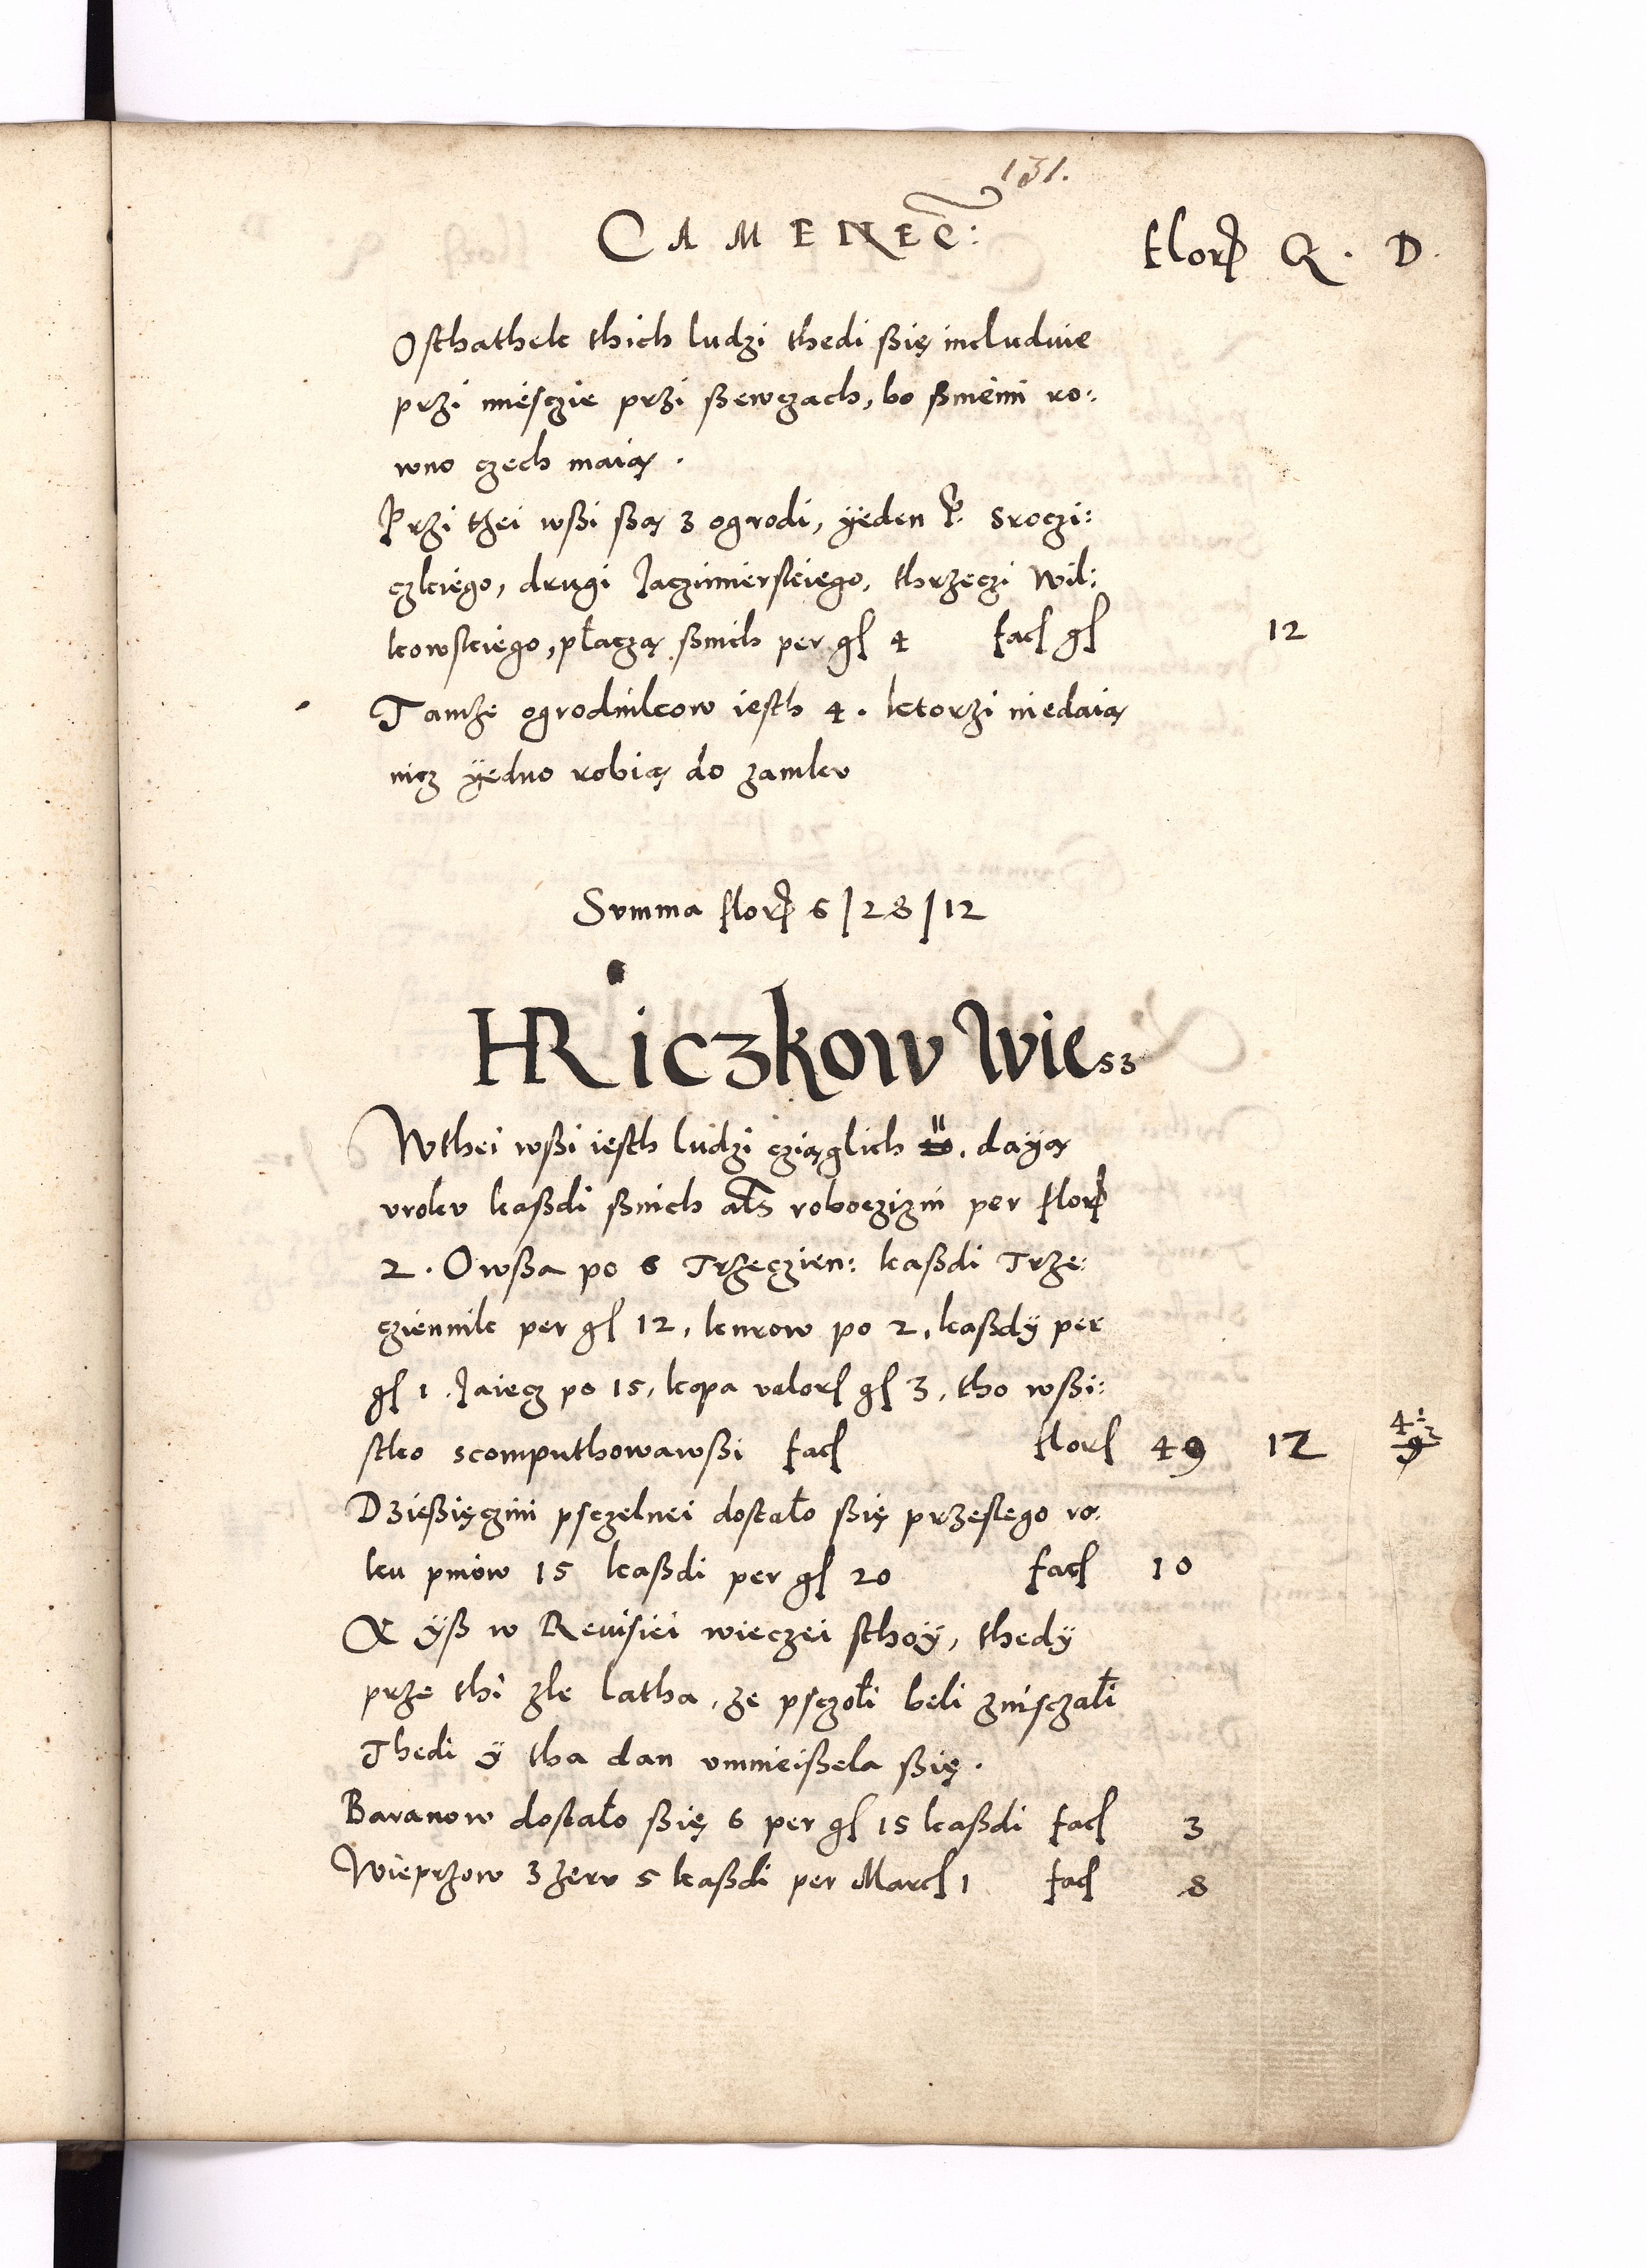 131.
CAMENEC: flor Q. D.
Osthathek thich ludzi thedi ßię includuie
przi miesczie przi ßewczach, bo ßniemi ro:
wno czech maią.
Przi thei wßi ßą 3 ogrodi, ÿeden P. Sroczi:
czkiego, drugi Jaczimierskiego, thrzeczi Wil:
kowskiego, płaczą ßnich per gł 4 fač gł 12
Tamże ogrodnikow iesth 4. ktorzi niedaią
nicz ÿedno robią do zamku
Summa flor 6/28/12
HRiczkow Wiesz
Wthei wßi iesth ludzi cziąglich, daÿą
vroku kaßdi ßnich als roboczizni per flor
2. Owßa po 6 Trzeczien: kaßdi Trze:
cziennik per gł 12, kurow po 2, kaßdÿ per
gł 1. Jaiecz po 15, kopa valor gł 3, tho wßi:
stko scomputhowawßi fač flor 49 12
Dzießięczini psczelnei dostało ßię przeslego ro:
ku pniow 15 kaßdi per gł 20 fač 10
A ÿß w Reuisiei wieczei sthoÿ, thedÿ
prze thi złe latha, ze psczołi beli znisczałi
Thedi ÿ tha dan vmnieißela ßię.
Baranow dostało ßię 6 per gł 15 kaßdi fač 3
Wieprzow 3 żeru 5 kaßdi per Març 1 fač 8